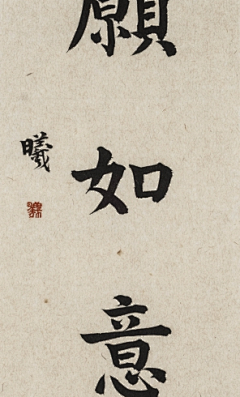 願如意
曦